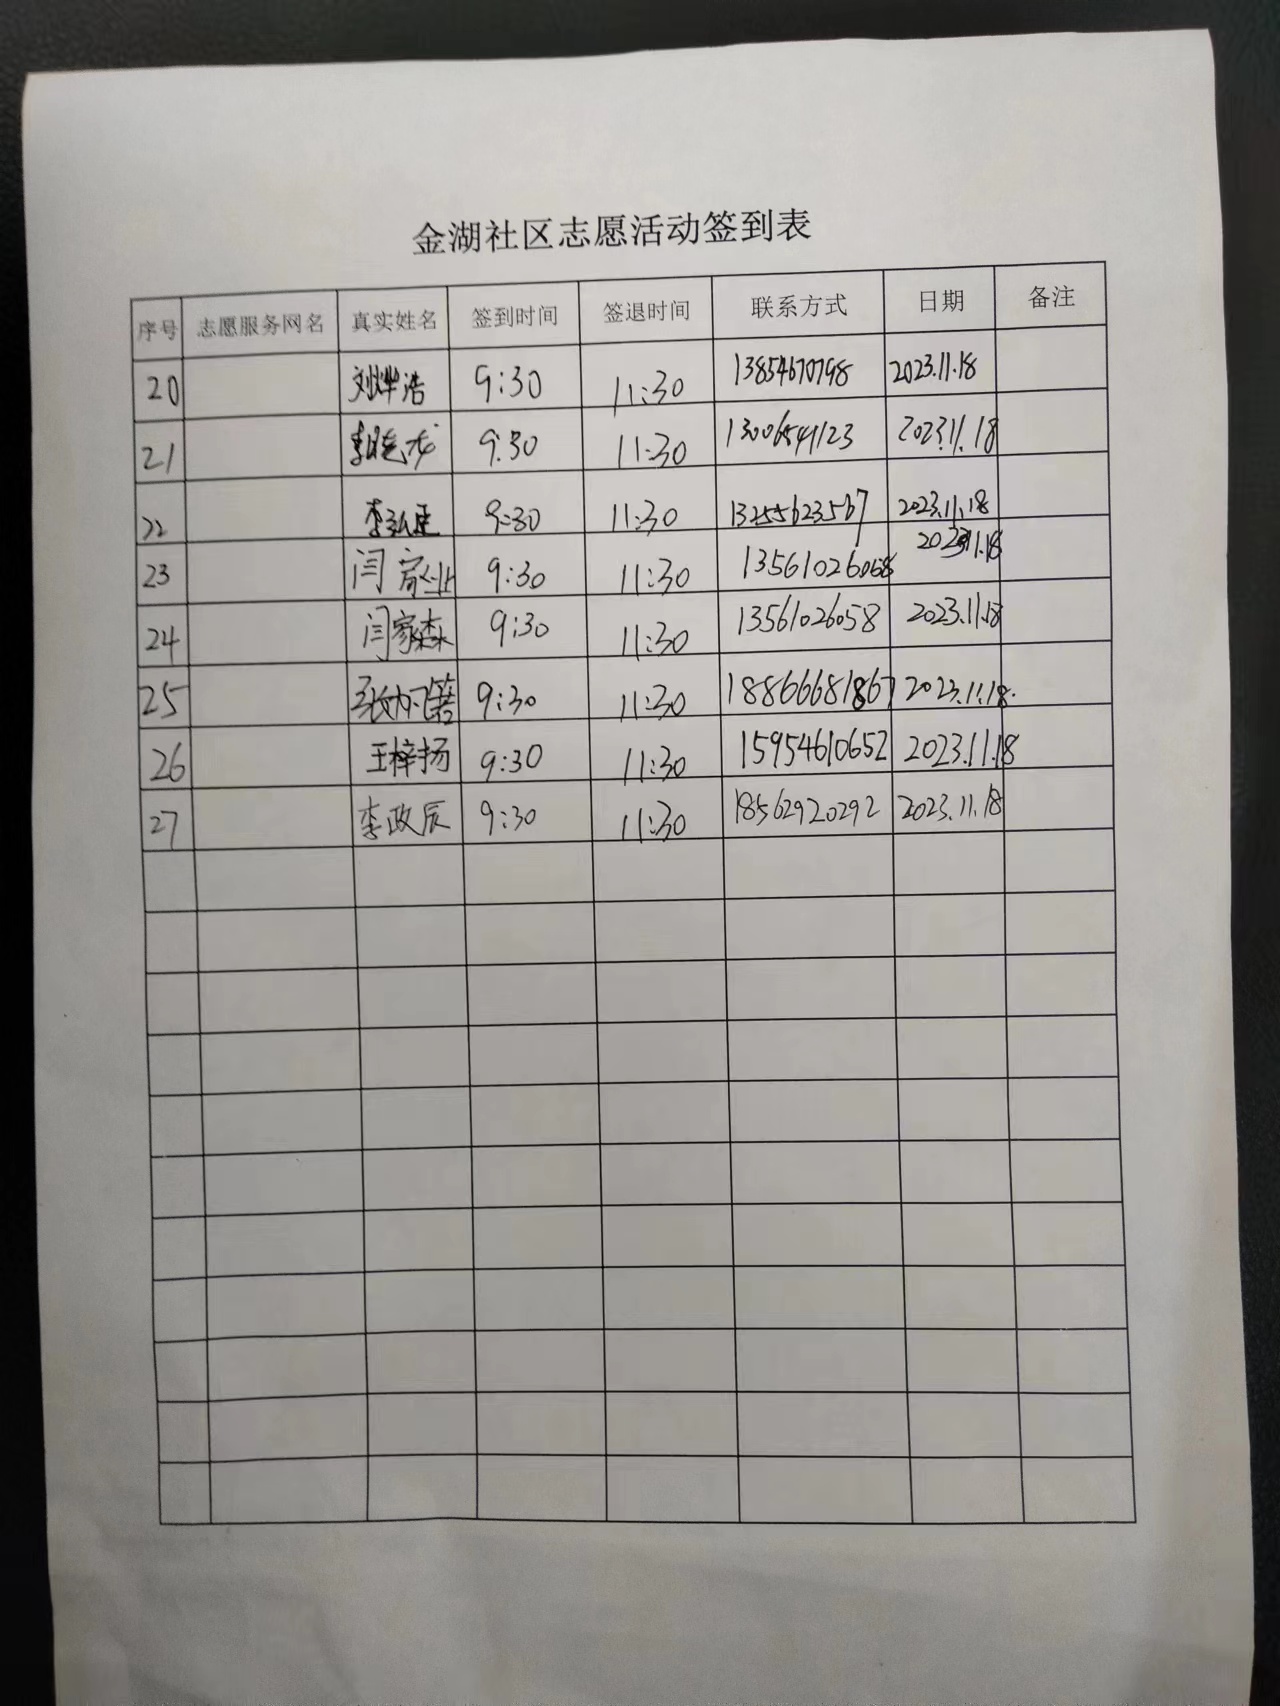 金湖社区志愿活动签到表
序号 志愿服务网名 真实姓名 签到时间 签退时间 联系方式 日期 备注
20 刘烨浩 9:30 11:30 13854670798 2023.11.18
21 李晓龙 9:30 11:30 13006541123 2023.11.18
22 李 9:30 11:30 13255623567 2023.11.18
23 闫家业 9:30 11:30 13561026058 2023.11.18
24 闫家森 9:30 11:30 13561026058 2023.11.18
25 张 9:30 11:30 18866681867 2023.11.18.
26 王梓扬 9:30 11:30 15954610652 2023.11.18
27 李政辰 9:30 11:30 18562920292 2023.11.18